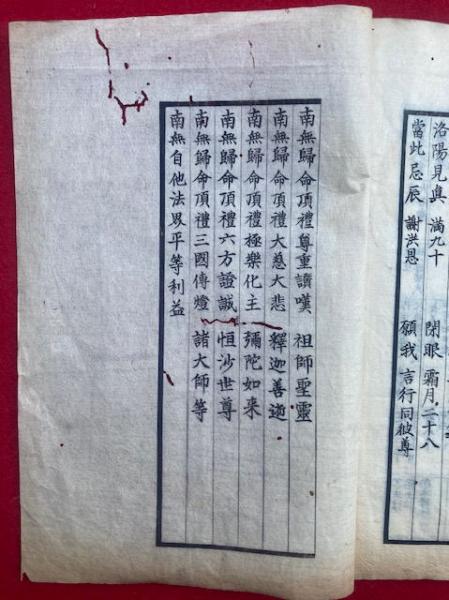 洛陽見眞 満九十 閉眼 霜月二十八
當此忌辰 謝洪恩 願我 言行同彼尊
南無歸命頂禮尊重讃嘆 祖師聖靈
南無歸命頂禮大慈大悲 釋迦善逝
南無歸命頂禮極樂化主 彌陀如来
南無歸命頂禮六方證誠 恒沙世尊
南無歸命頂禮三國傳燈 諸大師等
南無自他法界平等利益